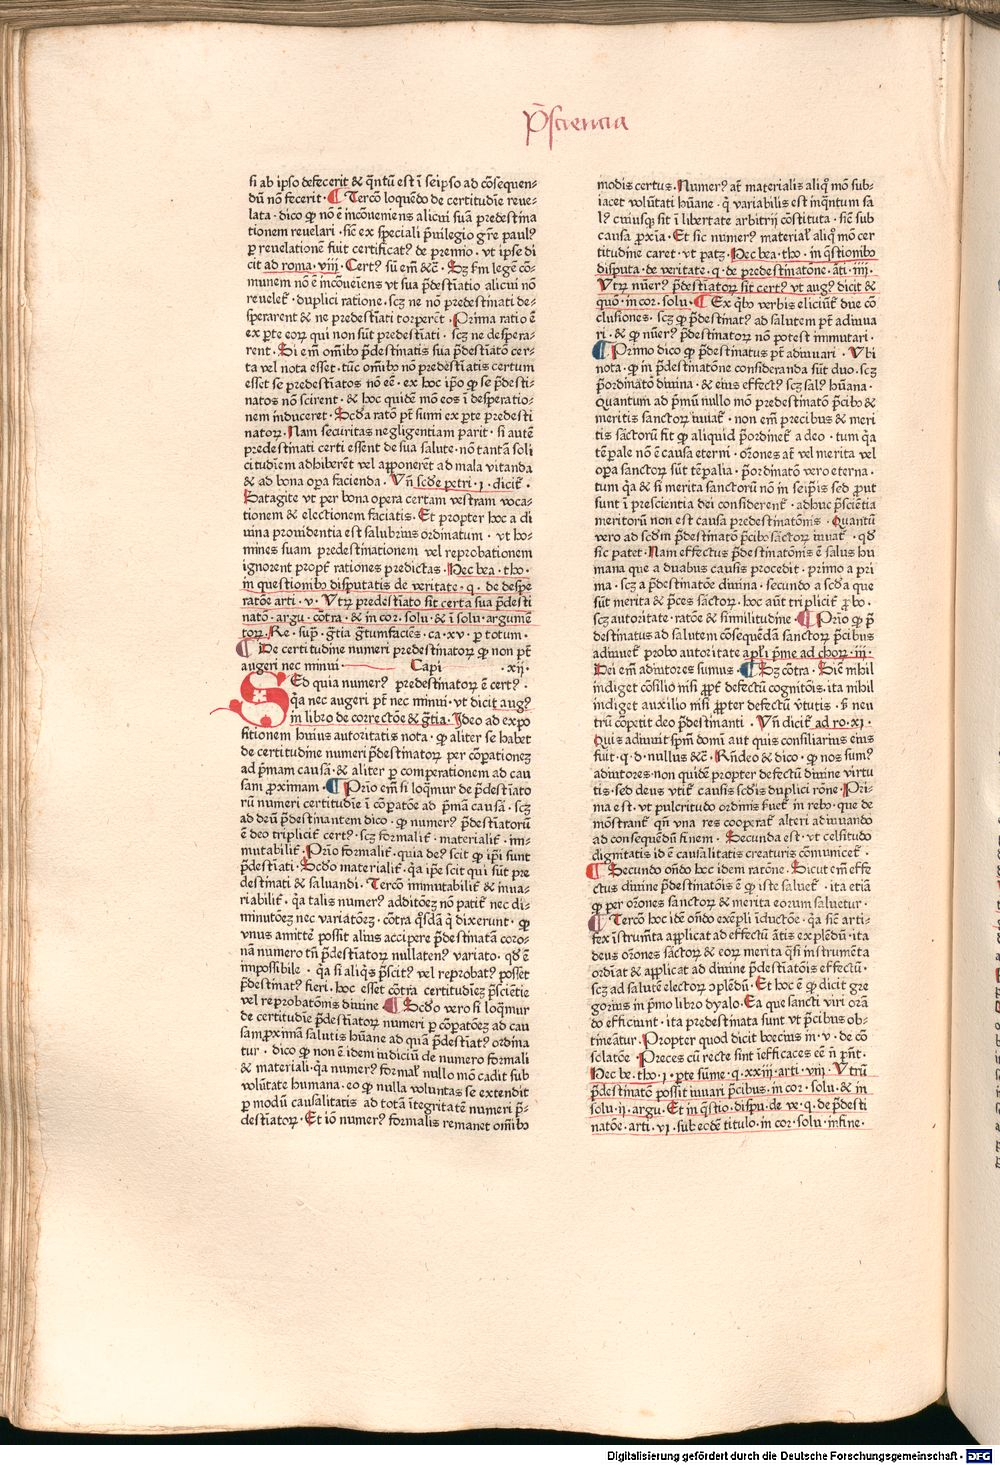 p̄sciencia
si ab ipso defecerit & q̄ntū est ī seipso ad cōsequen-
dū nō fecerit · ¶ Tercō loquēdo de certitudīe reue-
lata · dico ꝙ nō ē incōueniens alicui suā predestina
tionem reuelari · sic̄ ex speciali p̄uilegio gr̄e paulꝰ
ꝑ reuelationē fuit certificatꝰ de premio · vt ipse di
cit ad roma · viii · Certꝰ sū em̄ &c̄ · Sꝫ scd̄m legē cō-
munem nō ē incōueīens vt sua p̄destīatio alicui nō
reueleť · duplici ratione · scꝫ ne nō predestinati de-
sperarent & ne predestīati torperēt · Prima ratio ē
ex ꝑte eoꝝ qui non sūt predestīati · scꝫ ne despera-
rent · Si em̄ om̄ibꝰ p̄destinatis sua p̄destīatō cer-
ta vel nota esset · tūc om̄ibꝰ nō predestīatis certum
esset se predestīatos nō eē · ex hoc ip̄o ꝙ se p̄desti-
natos nō scirent · & hoc quidē mō eos ī desperatio-
nem induceret · Scd̄a ratō pt̄ sumi ex ꝑte predesti
natoꝝ · Nam securitas negligentiam parit · si autē
predestinati certi essent de sua salute · nō tantā soli
citudīem adhiberēt vel apponerēt ad mala vitanda
& ad bona oꝑa facienda · Vn̄ scd̄e petri · i · diciť ·
Satagite vt per bona opera certam vestram voca-
tionem & electionem faciatis · Et propter hoc a di
uina prouidentia est salubrius ordinatum · vt ho-
mines suam predestinationem vel reprobationem
ignorent propť rationes predictas · Hec bea · tho ·
in questionibꝰ disputatis de veritate · q · de despe
ratōe arti · v · Vtꝝ predestīato sit certa sua p̄desti
natō · argu · cōtra · & in cor · solu · & ī solu · argumē
toꝝ · Re · sup̄ · gr̄tia gr̄tumfaciēs · ca · xv · ꝑ totum ·
¶ De certitudine numeri predestinatoꝝ ꝙ non pt̄
augeri nec minui · Capi · xij ·
SEd quia numerꝰ predestinatoꝝ ē certꝰ ·
q̄a nec augeri pt̄ nec minui · vt dicit augꝰ
in libro de correctōe & gr̄tia · Ideo ad expo
sitionem huius autoritatis nota · ꝙ aliter se habet
de certitudine numeri p̄destinatoꝝ per cōꝑationeꝫ
ad p̄mam causā · & aliter ꝑ comperationem ad cau
sam ꝓximam · ¶ Prīo em̄ si loq̄mur de p̄destīato
rū numeri certitudīe ī cōꝑatōe ad p̄mā causā · scꝫ
ad deū p̄destinantem dico · ꝙ numerꝰ p̄destīatorū
ē deo tripliciť certꝰ · scꝫ formaliť · materialiť · im-
mutabiliť · Prīo formaliť · quia deꝰ scit ꝙ ip̄i sunt
p̄destīati · Scd̄o materialiť · q̄a ip̄e scit qui sūt pre
destinati & saluandi · Tercō immutabiliť & inua-
riabiliť · q̄a talis numerꝰ additōeꝫ nō patiť nec di-
minutōeꝫ nec variatōeꝫ · cōtra q̄sdā q̄ dixerunt · ꝙ
vnus amittē possit alius accipere p̄destinatā coro-
nā numero tn̄ p̄destīatoꝝ nullatenꝰ variato · qd̄ ē
impossibile · q̄a si aliq̄s p̄scitꝰ vel reprobatꝰ posset
p̄destinatꝰ fieri · hoc esset cōtra certitudīeꝫ p̄sciētie
vel reprobatōnis diuine · ¶ Scd̄o vero si loq̄mur
de certitudīe p̄destīatoꝝ numeri ꝑ cōꝑatōeꝫ ad cau
sam ꝓximā salutis hūane ad quā p̄destīatꝰ ordina
tur · dico ꝙ non ē idem iudiciū de numero formali
& materiali · q̄a numerꝰ formaľ nullo mō cadit sub
volūtate humana · eo ꝙ nulla voluntas se extendit
ꝑ modū causalitatis ad totā ītegritatē numeri p̄-
destīatoꝝ · Et iō numerꝰ formalis remanet om̄ibꝰ
modis certus · Numerꝰ at̄ materialis aliq̄ mō sub-
iacet volūtati hūane · q̄ variabilis est inq̄ntum sa
lꝰ cuiusꝗ sit ī libertate arbitrij cōstituta · sic̄ sub
causa ꝓxīa · Et sic numerꝰ materiaľ aliq̄ mō cer
titudine caret · vt patꝫ · Hec bea · tho · in q̄stionibꝰ
disputa · de veritate · q · de predestinatōne · āti · iiii ·
Vtꝝ nūerꝰ p̄destīatoꝝ sit certꝰ vt augꝰ dicit &
quō · in cor · solu · ¶ Ex q̄bꝰ verbis eliciūť due cō
clusiones · scꝫ ꝙ p̄destinatꝰ ad salutem pt̄ adiuua
ri · & ꝙ nūerꝰ p̄destinatoꝝ nō potest immutari ·
¶ Primo dico ꝙ p̄destinatus pt̄ adiuuari · Vbi
nota · ꝙ in p̄destinatōne consideranda sūt duo · scꝫ
p̄ordinatō diuina · & eius effectꝰ scꝫ salꝰ hūana ·
Quantum ad p̄mū nullo mō predestinatō p̄cibꝰ &
meritis sanctoꝝ iuuať · non em̄ precibus & meri
tis sāctorū fit ꝙ aliquid p̄ordineť a deo · tum q̄a
tēꝑale nō ē causa eterni · oꝛōnes at̄ vel merita vel
oꝑa sanctoꝝ sūt tēꝑalia · p̄ordinatō vero eterna ·
tum q̄a & si merita sanctorū nō in seip̄is sed ꝓut
sunt ī prescientia dei considerenť · adhuc p̄sciētia
meritorū non est causa predestinatōnis · Quantū
vero ad scd̄m p̄destinatō p̄cibꝰ sāctoꝝ iuuať · qd̄
sic patet · Nam effectus p̄destinatōnis ē salus hu
mana que a duabus causis procedit · primo a pri
ma · scꝫ a p̄destinatōe diuina · secundo a scd̄a que
sūt merita & p̄ces sāctoꝝ · hoc aūt tripliciť ꝓbo ·
scꝫ autoritate · ratōe & similitudine · ¶ Prīo ꝙ p̄
destinatus ad salutem cōsequēdā sanctoꝝ p̄cibus
adiuueť probo autoritate apľi p̄me ad choꝝ · iii ·
Dei em̄ adiutores sumus · ¶ Sꝫ cōtra · Sic̄ nihil
indiget cōsilio nisi ꝓpť defectū cognitōis · ita nihil
indiget auxilio nisi ꝓpter defectū v̄tutis · sꝫ neu
trū cōpetit deo p̄destinanti · Vn̄ diciť ad ro · xi ·
Quis adiuuit sp̄m dom̄i aut quis consiliarius eius
fuit · q · d · nullus &c̄ · Rn̄deo & dico · ꝙ nos sumꝰ
adiutores · non quidē propter defectū diuine virtu
tis · sed deus vtiť causis scd̄is duplici rōne · Pri-
ma est · vt pulcritudo ordinis ẜueť in rebꝰ · que de
mōstranť qn̄ vna res cooperať alteri adiuuando
ad consequēdū finem · Secunda est · vt celsitudo
dignitatis id ē causalitatis creaturis cōmuniceť ·
¶ Secundo on̄do hoc idem ratōne · Sicut em̄ effe
ctus diuine p̄destinatōis ē ꝙ iste salueť · ita etiā
ꝙ per oꝛōnes sanctoꝝ & merita eorum saluetur ·
¶ Tercō hoc idē on̄do exēpli īductōe · q̄a sic̄ arti-
fex īstrum̄ta applicat ad effectū ātis explēdū · ita
deus oꝛōnes sāctoꝝ & eoꝝ merita q̄si instrumēta
ordīat & applicat ad diuine p̄destīatōis effectū ·
scꝫ ad salutē electoꝝ ↄplēdū · Et hoc ē ꝙ dicit gre
gorius in p̄mo libro dyalo · Ea que sancti viri orā
do efficiunt · ita predestinata sunt vt p̄cibus ob-
tineātur · Propter quod dicit boecius in · v · de cō
solatōe · Preces cū recte sint īefficaces eē n̄ pn̄t ·
Hec be · tho · i · ꝑte sūme · q · xxiii · arti · viii · Vtrū
p̄destinatō possit iuuari p̄cibus · in cor · solu · & in
solu · ii · argu · Et in q̄stio · dispu · de ve · q · de p̄desti
natōe · arti · vi · sub eodē titulo · in cor · solu · in fine ·
Digitalisierung gefördert durch die Deutsche Forschungsgemeinschaft - DFG